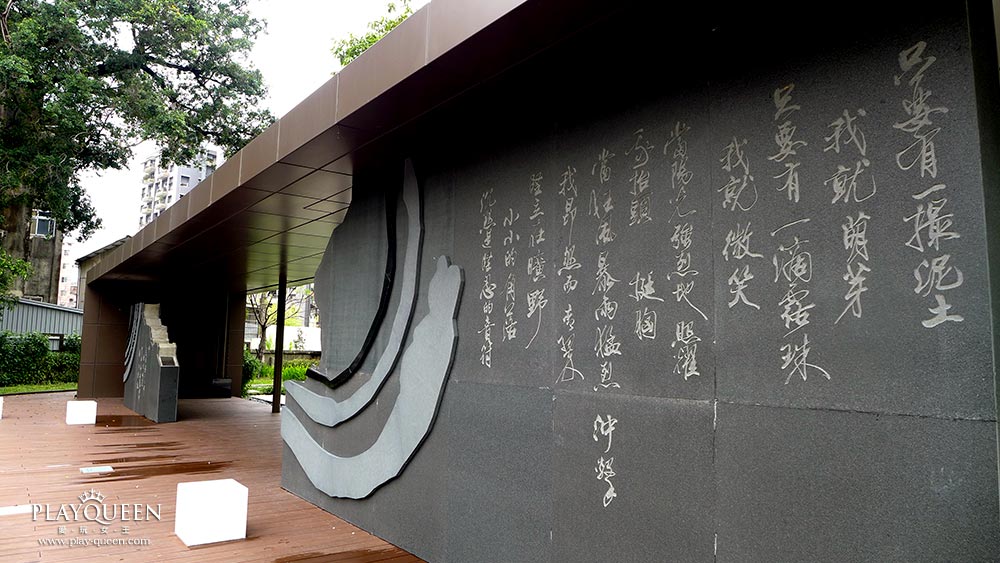 只要有一撮泥土
我就萌芽
只要有一滴露珠
我就微笑
當陽光強烈地照耀
我抬頭挺胸
當狂風暴雨猛烈沖擊
我昂然而青翠
在曠野
小小的角落
的音符
PLAYQUEEN
愛·玩·女·王
www.play-queen.com